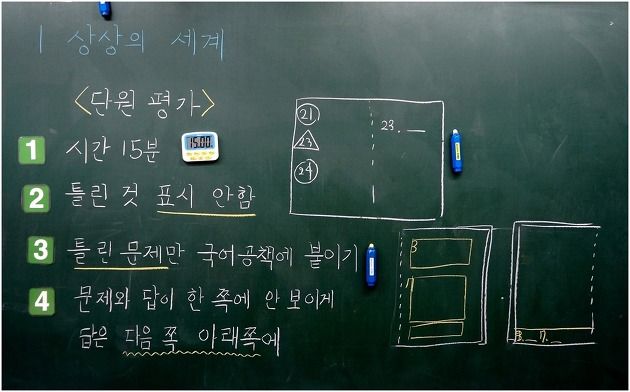 1 상상의 세계
<단원 평가>
1 시간 15분
15:00
2 틀린 것 표시 안함
3 틀린 문제만 국어공책에 붙이기
4 문제와 답이 한 쪽에 안 보이게
답은 다음 쪽 아래쪽에
21
23
24
23. __
3
7
3. _ 7. _